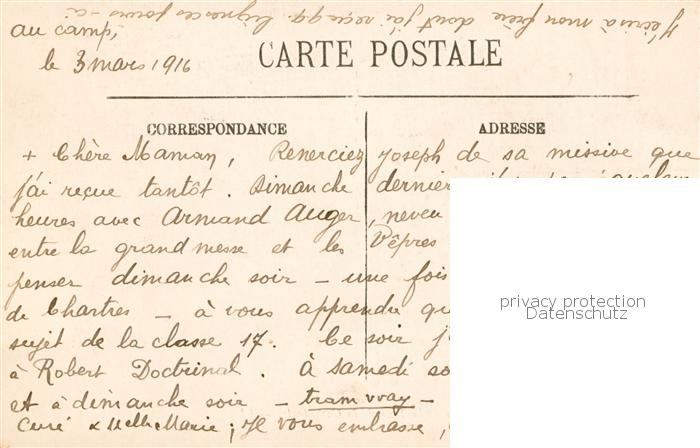 J'écris à mon frère dont j'ai reçu qq. lignes ces jours-ci
au camp,
le 3 mars 1916
CARTE POSTALE
CORRESPONDANCE
ADRESSE
+ Chère Maman, Renerciez Joseph de sa missive que
j'ai reçue tantôt. Dimanche dernier
heures avec Armand Auger, neveu
entre la grand messe et les Vêpres
penser dimanche soir - une fois
de Chartres - à vous apprendre
sujet de la classe 17. Ce soir
à Robert Doctrinal. à samedi
et à dimanche soir - tramway -
Curé & Melle Marie; Je vous embrasse,
privacy protection
Datenschutz